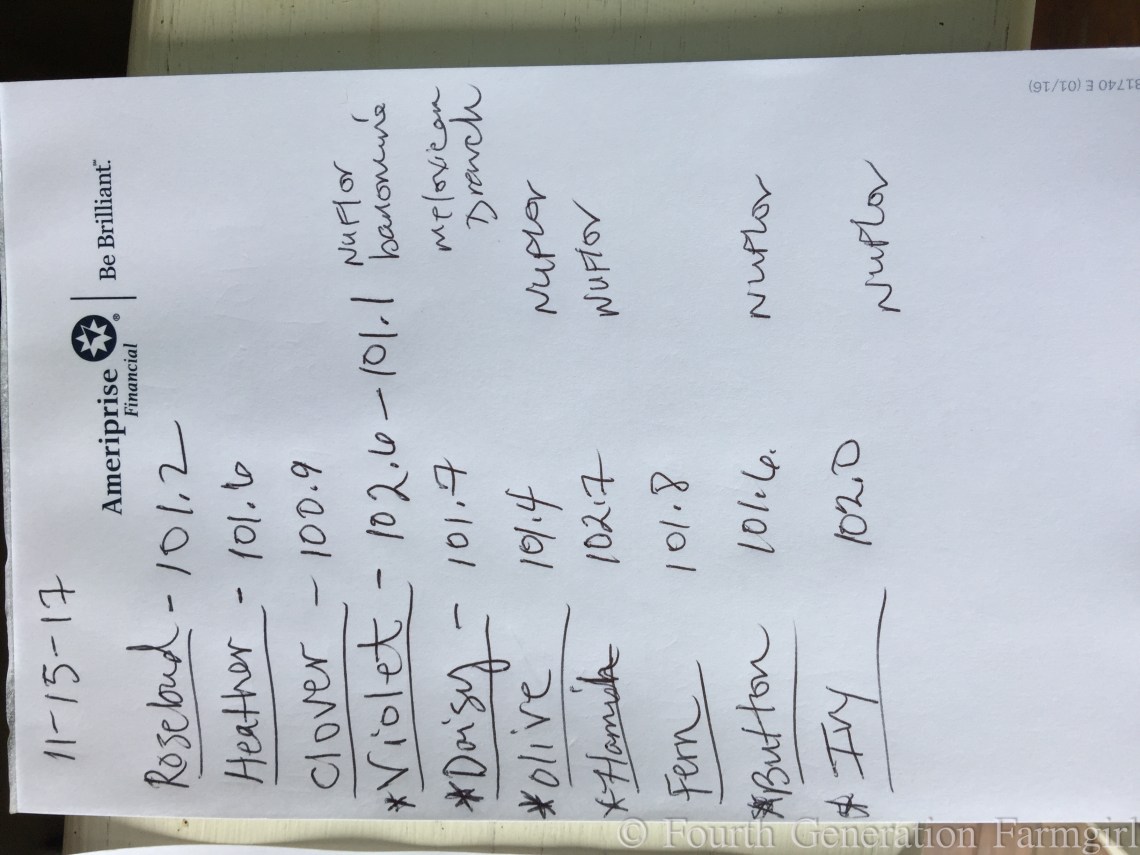 11-15-17
Ameriprise Financial ® Be Brilliant.™
Rosebud - 101.2
Heather - 101.6
Clover - 100.9
*Violet - 102.6 - 101.1 Nuflor banamine
*Daisy - 101.7 meloxicam Drench
*Olive 101.4 Nuflor
*Hamish 102.7 Nuflor
Fern 101.8
*Button 101.6. Nuflor
* Ivy 102.0 Nuflor
31740 E (01/16)
© Fourth Generation Farmgirl